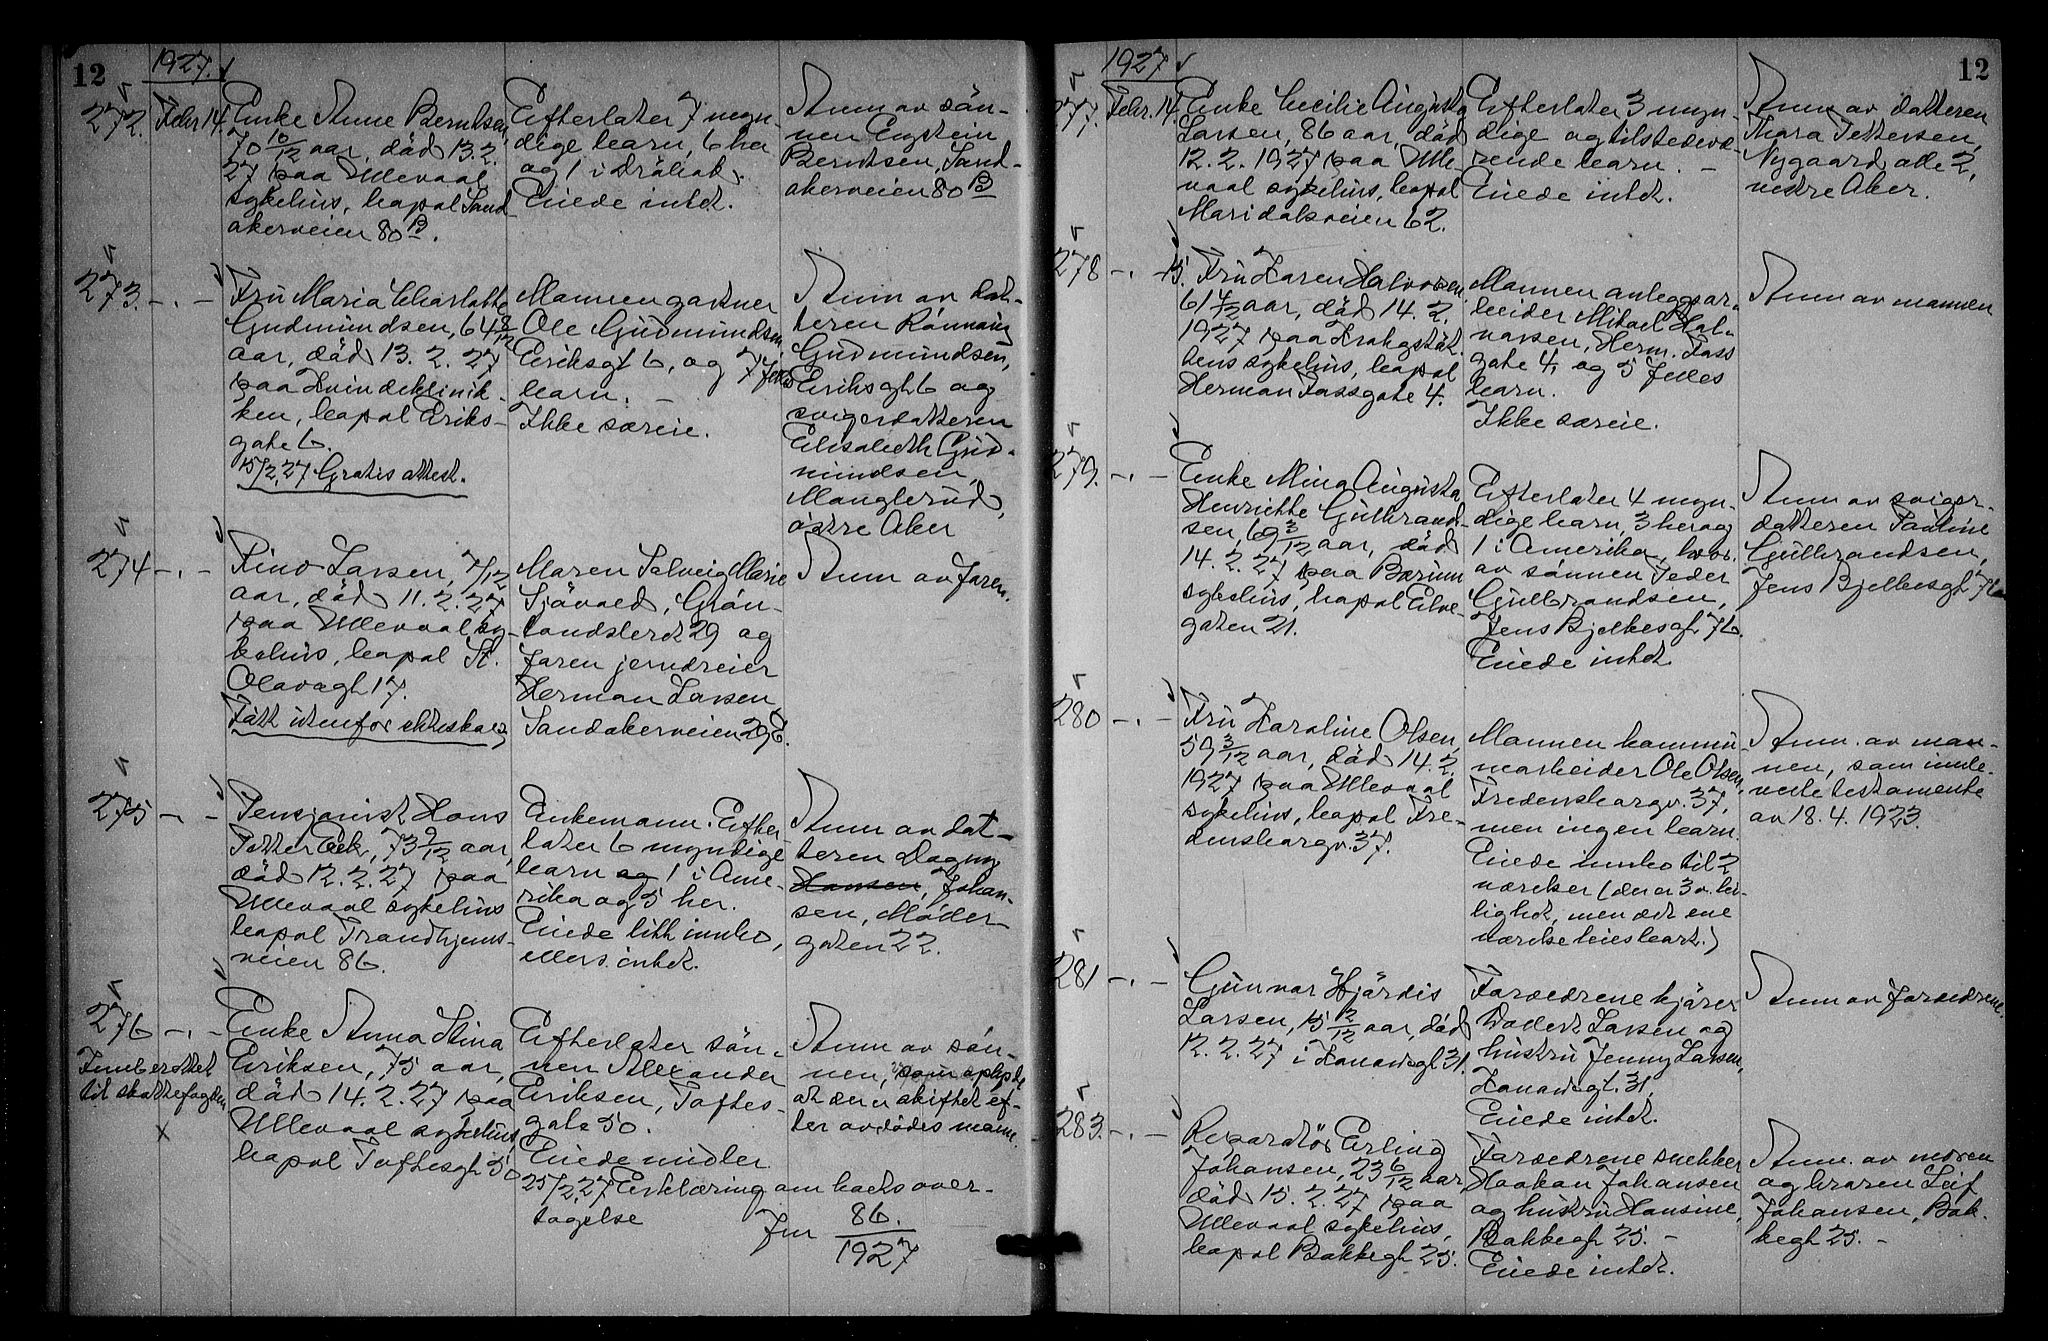 12
1927.
272. Febr 14. Enke Anne Berntsen,
70 10/12 aar, död 13.2.
27 paa Ullevaal
sykehus, bopal Sand-
akerveien 80 B.
Efterlater 7 myn-
dige barn, 6 her
og 1 i Dröbak.
Eiede intet.
Anm av sön-
nen Eystein
Berntsen, Sand-
akerveien 80 B
273. -.- Fru Maria Charlotte
Gudmundsen, 64 8/12
aar, död 13. 2. 27
paa Kvindeklinik-
ken, bopal Eriks-
gate 6.
15/2.27 Gratis attest.
Mannen gartner
Ole Gudmundsen,
Eriksgt 6, og 7 felles
barn. -
Ikke særeie.
Anm av dat-
teren Rönnaug
Gudmundsen,
Eriksgt 6 og
svigerdatteren
Elisabeth Gud-
mundsen,
Manglerud,
östre Aker
274 -.- Finn Larsen, 7/12
aar, död 11. 2. 27
paa Ullevaal sy-
kehus, bopal St.
Olavsgt 17.
Fött utenfor ekteskap
Moren Solveig Marie
Sjövold, Grön-
landsleret 29 og
faren jerndreier
Herman Larsen,
Sandakerveien 29 E.
Anm av faren.
275 -.- Pensjonist Hans
Petter Eek, 73 9/12 aar,
död 12. 2. 27 paa
Ullevaal sykehus
bopal Trondhjems-
veien 86.
Enkemann. Efter
later 6 myndige
barn og 1 i Ame-
rika og 5 her.
Eiede litt innbo,
ellers intet.
Anm av dat-
teren Dagny
Hansen, Johan-
sen, Möller-
gaten 22.
276 -.- Enke Anna Stina
Eriksen, 75 aar,
död 14. 2. 27 paa
Ullevaal sykehus,
bopal Toftesgt 50
til skattefogden
x
Efterlater sön-
nen Alexander
Eriksen, Toftes-
gate 50.
Eiede midler
25/2.27 Erklæring om boets over-
tagelse
86.
1927
Anm av sön-
nen, som oplyste
at der er skiftet ef-
ter avdödes mann.
12
1927
277. Febr. 14. Enke Cecilie Augusta
Larsen, 86 aar, död
12. 2. 1927 paa Ulle-
vaal sykehus, bopal
Maridalsveien 62.
Efterlater 3 myn-
dige og tilstedevæ-
rende barn. -
Eiede intet.
Anm av datteren
Thora Pettersen,
Nygaards alle 2,
vestre Aker.
278 -.- 15. Fru Karen Halvorsen,
61 4/12 aar, död 14. 2.
1927 paa Krohgstöt-
tens sykehus, bopal
Herman Fossgate 4.
Mannen anleggsar-
beider Mikael Hal-
vorsen, Herm. Foss
gate 4, og 5 felles
barn.
Ikke særeie.
Anm av mannen
279. -.- Enke Mina Augusta
Henriette Gulbrand-
sen, 69 3/12 aar, död
14. 2. 27 paa Bærum
sykehus, bopal Elve-
gaten 21.
Efterlater 4 myn-
dige barn, 3 her og
1 i Amerika, hvor-
av sönnen Peder
Gulbrandsen,
Jens Bjelkesgt 76.
Eiede intet
Anm av sviger-
datteren Pauline
Gulbrandsen,
Jens Bjelkesgt 76
280 -.- Fru Karoline Olsen,
59 3/12 aar, död 14. 2.
1927 paa Ullevaal
sykehus, bopal Fre-
densborgv. 37.
Mannen kommu-
nearbeider Ole Olsen,
Fredensborgv. 37,
men ingen barn.
Eiede innbo til 2
værelser (der er 3 v. lei-
lighet, men det ene
værelse leies bort.)
Anm. av man-
nen, som innle-
verte testamente
av 18. 4. 1923.
281 -.- Gunvor Hjördis
Larsen, 15 2/12 aar, död
12. 2. 27 i Kanadagt 31.
Foreldrene kjörer
Larsen og
hustru Jenny Larsen,
Kanadagt. 31,
Eiede intet.
Anm av foreldrene.
283. -.- Reparatör Erling
Johansen, 23 6/12 aar,
död 15. 2. 27 paa
Ullevaal sykehus,
bopal Bakkegt 25.
Foreldrene snekker
Haakon Johansen
og hustru Hansine,
Bakkegt 25. -
Eiede intet.
Anm. av moren
og broren Leif
Johansen, Bak-
kegt 25. -